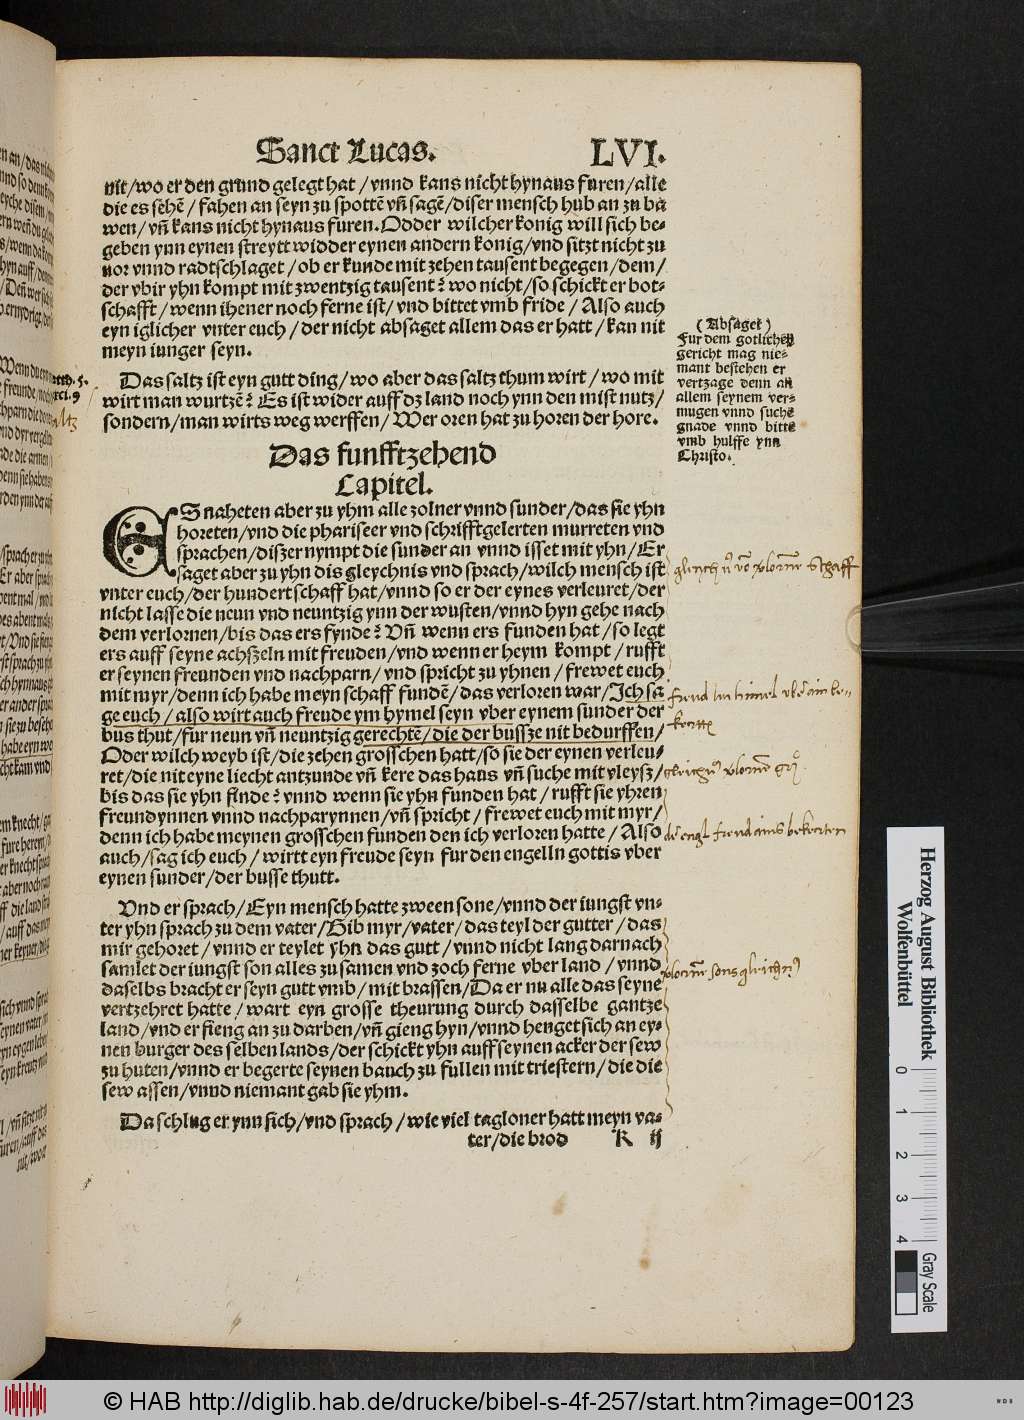 Sanct Lucas. LVI.
nit/wo er den grund gelegt hat/vnnd kans nicht hynaus furen/alle
die es sehē/fahen an seyn zu spottē vñ sagē/diser mensch hub an zu ba
wen/vñ kans nicht hynaus furen. Odder wilcher konig will sich be-
geben ynn eynen streytt widder eynen andern konig/vnd sitzt nicht zu
uor vnnd radtschlaget/ob er kunde mit zehen tausent begegen/dem/
der vbir yhn kompt mit zwentzig tausent? wo nicht/so schickt er bot-
schafft/wenn ihener noch ferne ist/vnd bittet vmb fride/Also auch
eyn iglicher vnter euch/der nicht absaget allem das er hatt/kan nit
meyn iunger seyn.
(Absaget)
Fur dem gotlichen
gericht mag nie-
mant bestehen er
vertzage denn an
allem seynem ver-
mugen vnnd suche
gnade vnnd bitte
vmb hulffe ynn
Christo.
atth. 5.
rci. 9
altz
Das saltz ist eyn gutt ding/wo aber das saltz thum wirt/wo mit
wirt man wurtzē? Es ist wider auff dz land noch ynn den mist nutz/
sondern/man wirts weg werffen/Wer oren hat zu horen der hore.
Das funfftzehend
Capitel.
ES naheten aber zu yhm alle zolner vnnd sunder/das sie yhn
horeten/vnd die phariseer vnd schrifftgelerten murreten vnd
sprachen/diszer nympt die sunder an vnnd isset mit yhn/Er
saget aber zu yhn dis gleychnis vnd sprach/wilch mensch ist
vnter euch/der hundert schaff hat/vnnd so er der eynes verleuret/der
nicht lasse die neun vnd neuntzig ynn der wusten/vnnd hyn gehe nach
dem verlornen/bis das ers fynde? Vñ wenn ers funden hat/so legt
ers auff seyne achszeln mit freuden/vnd wenn er heym kompt/rufft
er seynen freunden vnd nachparn/vnd spricht zu yhnen/frewet euch
mit myr/denn ich habe meyn schaff fundē/das verloren war/Ich sa
ge euch/also wirt auch freude ym hymel seyn vber eynem sunder der
bus thut/fur neun vnd neuntzig gerechtē/die der bussze nit bedurffen/
Oder wilch weyb ist/die zehen grosschen hatt/so sie der eynen verleu-
ret/die nit eyne liecht antzunde vñ kere das haus vñ suche mit vleysz/
bis das sie yhn finde? vnnd wenn sie yhn funden hat/rufft sie yhren
freundynnen vnnd nachparynnen/vñ spricht/frewet euch mit myr/
denn ich habe meynen grosschen funden den ich verloren hatte/Also
auch/sag ich euch/wirtt eyn freude seyn fur den engelln gottis vber
eynen sunder/der busse thutt.
Schaff
Vnd er sprach/Eyn mensch hatte zween sone/vnnd der iungst vn-
ter yhn sprach zu dem vater/Gib myr/vater/das teyl der gutter/das
mir gehoret/vnnd er teylet yhn das gutt/vnnd nicht lang darnach
samlet der iungst son alles zu samen vnd zoch ferne vber land/vnnd
daselbs bracht er seyn gutt vmb/mit brassen/Da er nu alle das seyne
vertzehret hatte/wart eyn grosse theurung durch dasselbe gantze
land/vnd er fieng an zu darben/vñ gieng hyn/vnnd henget sich an ey-
nen burger des selben lands/der schickt yhn auff seynen acker der sew
zu huten/vnnd er begerte seynen bauch zu fullen mit triestern/die die
sew assen/vnnd niemant gab sie yhm.
Da schlug er ynn sich/vnd sprach/wie viel tagloner hatt meyn va-
ter/die brod K ij
Herzog August Bibliothek
Wolfenbüttel
0 1 2 3 4
Gray Scale
© HAB http://diglib.hab.de/drucke/bibel-s-4f-257/start.htm?image=00123